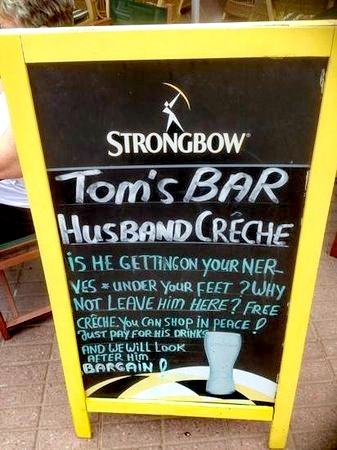 STRONGBOW®
Tom's BAR
HUSBAND CRÊCHE
IS HE GETTING ON YOUR NER-
VES * UNDER YOUR FEET ? WHY
NOT LEAVE HIM HERE? FREE
CRÊCHE. YOU CAN SHOP IN PEACE!
JUST PAY FOR HIS DRINKS
AND WE WILL LOOK
AFTER HIM
BARGAIN!